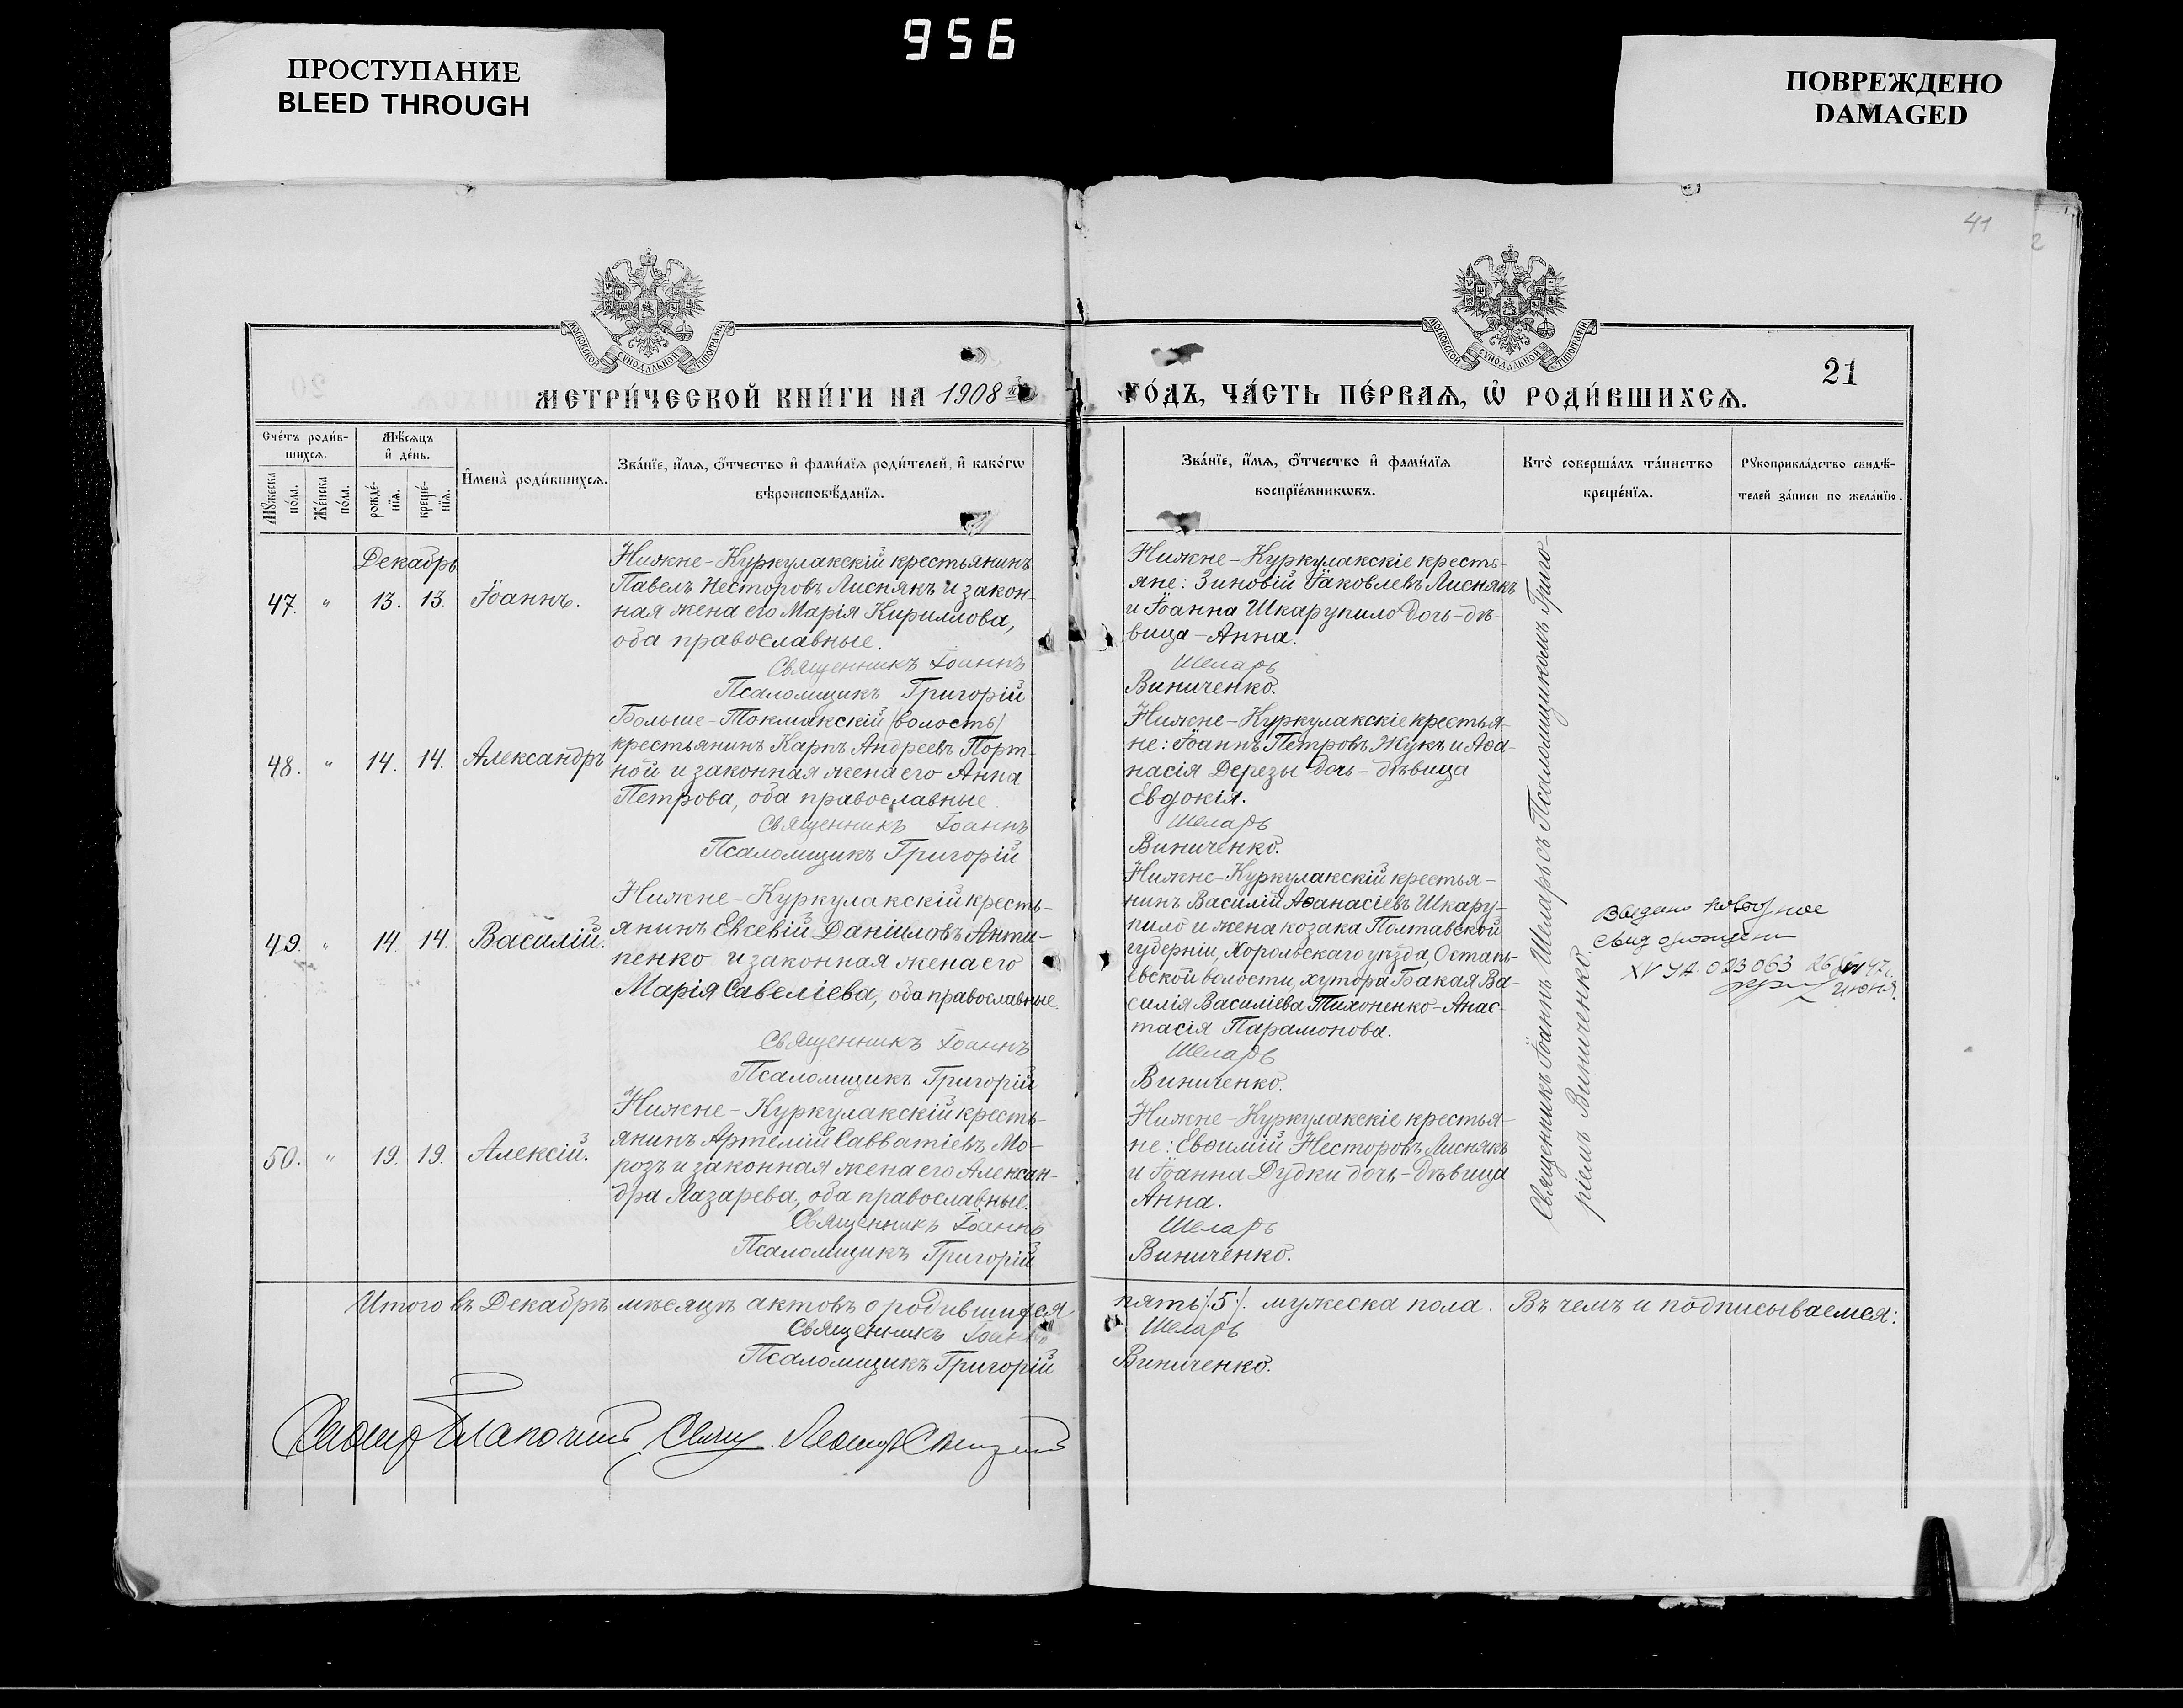 956
ПРОСТУПАНИЕ
BLEED THROUGH
ПОВРЕЖДЕНО
DAMAGED
41
2
МОСКОВСКОЙ СѴНОДАЛЬНОЙ ТИПОГРАФІИ
МОСКОВСКОЙ СѴНОДАЛЬНОЙ ТИПОГРАФІИ
21
МЕТРИ́ЧЕСКОЙ КНИ́ГИ НА 1908
ГО́ДЪ, ЧА́СТЬ ПЕ́РВАѦ, Ѡ҆ РОДИ́ВШИХСѦ.
Сче́тъ роди́в-
шихсѧ.
Мꙋ́жеска по́ла.
Же́нска по́ла.
Мѣ́сѧцъ
и҆ де́нь.
рожде́-
нїѧ.
креще́-
нїѧ.
И҆мена̀ роди́вшихсѧ.
Зва́нїе, и҆́мѧ, ѻ҆́тчество и҆ фами́лїѧ роди́телей, и҆ како́гѡ
вѣроисповѣ́данїѧ.
Зва́нїе, и҆́мѧ, ѻ҆́тчество и҆ фами́лїѧ
воспрїе́мникѡвъ.
Кто̀ соверша́лъ та́инство
креще́нїѧ.
Рꙋкоприкла́дство свидѣ́-
телей за́писи по жела́нїю.
Декабрь
47. " 13. 13. Іоаннъ.
Нижне-Куркулакскій крестьянинъ
Павелъ Несторовъ Лиснякъ и закон-
ная жена его Марія Кириллова,
оба православные.
Священникъ Іоаннъ
Псаломщикъ Григорій
Нижне-Куркулакскіе кресть-
яне: Зиновій Іаковлевъ Лиснякъ
и Іоанна Шкарупило дочь-дѣ-
вица-Анна.
Шеларь
Виниченко.
48. " 14. 14. Александръ
Больше-Токмакскій (волость)
крестьянинъ Карпъ Андреевъ Порт-
ной и законная жена его Анна
Петрова, оба православные.
Священникъ Іоаннъ
Псаломщикъ Григорій
Нижне-Куркулакскіе крестья-
не: Іоаннъ Петровъ Жукъ и Аѳа-
насія Дерезы дочь-дѣвица
Евдокія.
Шеларь
Виниченко.
49. " 14. 14. Василій.
Нижне-Куркулакскій кресть-
янинъ Евсевій Даніиловъ Анти-
пенко и законная жена его
Марія Савеліева, оба православные.
Священникъ Іоаннъ
Псаломщикъ Григорій
Нижне-Куркулакскій крестья-
нинъ Василій Аѳанасіевъ Шкару-
пило и жена козака Полтавской
губерніи, Хорольскаго уѣзда, Остапь-
евской волости, хутора Бакая Ва-
силія Василіева Тихоненко-Анас-
тасія Парамонова.
Шеларь
Виниченко.
50. " 19. 19. Алексій.
Нижне-Куркулакскій кресть-
янинъ Артемій Савватіевъ Мо-
розъ и законная жена его Алексан-
дра Лазарева, оба православные.
Священникъ Іоаннъ
Псаломщикъ Григорій
Нижне-Куркулакскіе крестья-
не: Евѳимій Несторовъ Лиснякъ
и Іоанна Дудки дочь-дѣвица
Анна.
Шеларь
Виниченко.
Священникъ Іоаннъ Шеларь съ Псаломщикомъ Григо-
ріемъ Виниченко.
Выдано
023063 26
июня
Итого въ Декабрѣ мѣсяцѣ актовъ о родившихся
пять /:5:/. мужеска пола. Въ чемъ и подписываемся:
Священникъ Іоаннъ
Шеларь
Псаломщикъ Григорій
Виниченко.